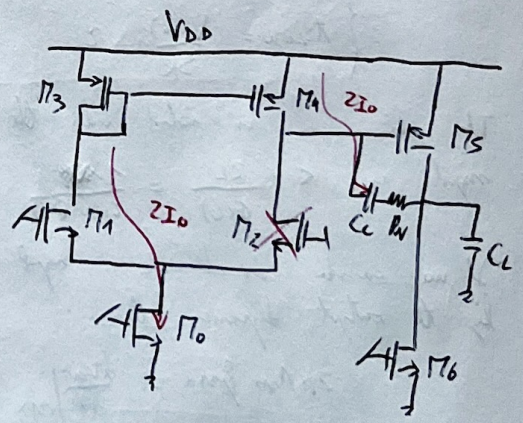 VDD
M3
M4
2I0
M5
M1
2I0
M2
CC
RN
CL
M0
M6